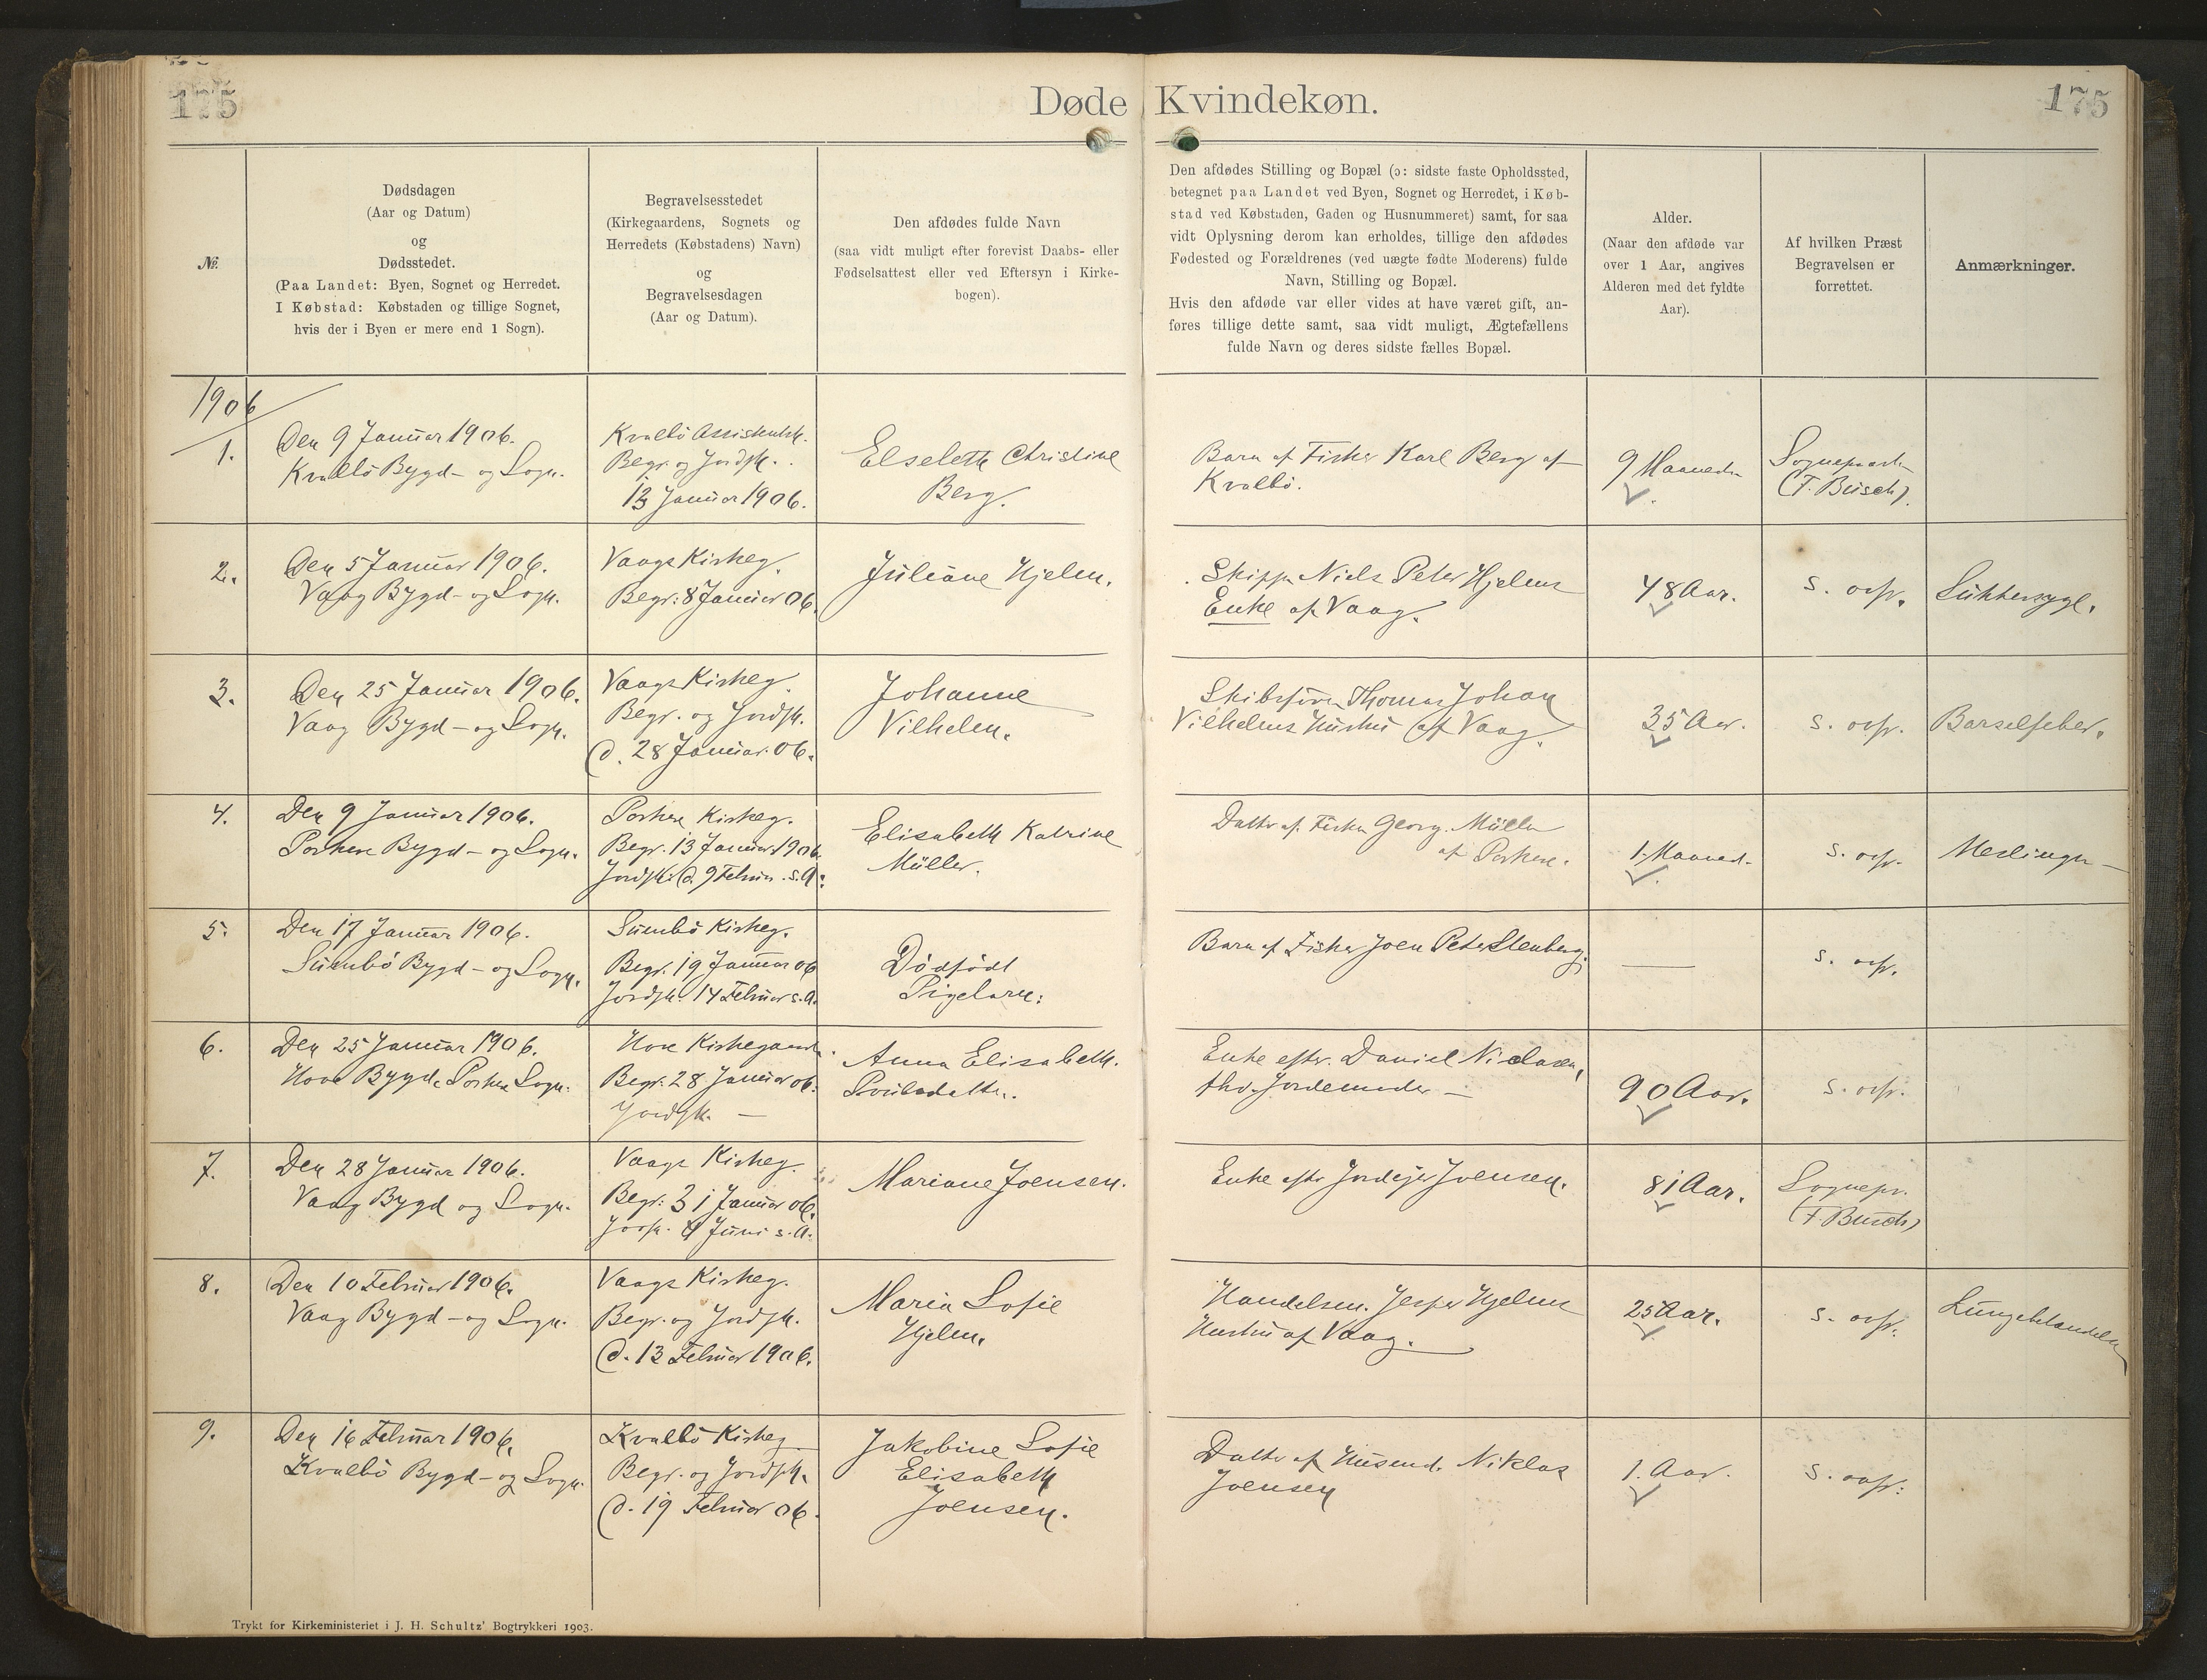 175
Døde Kvindekøn.
175
№
Dødsdagen
(Aar og Datum)
og
Dødsstedet.
(Paa Landet: Byen, Sognet og Herredet.
I Købstad: Købstaden og tillige Sognet,
hvis der i Byen er mere end 1 Sogn).
Begravelsesstedet
(Kirkegaardens, Sognets og
Herredets (Købstadens) Navn)
og
Begravelsesdagen
(Aar og Datum).
Den afdødes fulde Navn
(saa vidt muligt efter forevist Daabs- eller
Fødselsattest eller ved Eftersyn i Kirke-
bogen).
Den afdødes Stilling og Bopæl (ɔ: sidste faste Opholdssted,
betegnet paa Landet ved Byen, Sognet og Herredet, i Køb-
stad ved Købstaden, Gaden og Husnummeret) samt, for saa
vidt Oplysning derom kan erholdes, tillige den afdødes
Fødested og Forældrenes (ved uægte fødte Moderens) fulde
Navn, Stilling og Bopæl.
Hvis den afdøde var eller vides at have været gift, an-
føres tillige dette samt, saa vidt muligt, Ægtefællens
fulde Navn og deres sidste fælles Bopæl.
Alder.
(Naar den afdøde var
over 1 Aar, angives
Alderen med det fyldte
Aar).
Af hvilken Præst
Begravelsen er
forrettet.
Anmærkninger.
1906
1.
Den 9 Januar 1906.
Kvalbö Bygd- og Sogn.
Kvalbö
Begr. og Jordpk.
13 Januar 1906.
Elsebeth Christine
Berg.
Barn af Fisker Karl Berg af
Kvalbö.
9 Maaneder
Sognepræst
(F. Busch).
2.
Den 5 Januar 1906.
Vaag Bygd- og Sogn.
Vaags Kirkeg.
Begr: 8 Januar 06.
Juliane Hjelm.
Skipper Niels Peter Hjelms
Enke af Vaag.
48 Aar.
s. ovfr.
Sukkersyge.
3.
Den 25 Januar 1906.
Vaag Bygd- og Sogn.
Vaags Kirkeg.
Begr. og Jordpk.
d. 28 Januar 06.
Johanne
Vilhelm.
Skibsfører Thomas Johan
Vilhelms Hustru af Vaag.
35 Aar.
s. ovfr.
Barselfeber.
4.
Den 9 Januar 1906.
Porkere Bygd- og Sogn.
Porkere Kirkeg.
Begr. 13 Januar 1906.
Jordpk. d. 9 Februar s. A.
Elisabeth Katrine
Müller.
Datter af Fisker Georg Müller
af Porkere.
1 Maaned.
s. ovfr.
Meslinger
5.
Den 17 Januar 1906.
Sumbö Bygd- og Sogn.
Sumbö Kirkeg.
Begr. 19 Januar 06
Jordpk. 14 Februar s. A.
Dödfödt
Pigebarn.
Barn af Fisker Joen Peter Stenberg.
—
s. ovfr.
6.
Den 25 Januar 1906.
Hove Bygd, Porkere Sogn.
Hove Kirkegaard.
Begr. 28 Januar 06.
Jordpk. —
Anna Elisabeth
Poulsdatter.
Enke efter Daniel Niclasen,
fhv. Jordemoder —
90 Aar.
s. ovfr.
7.
Den 28 Januar 1906.
Vaag Bygd og Sogn.
Vaags Kirkeg.
Begr: 31 Januar 06.
4 Juni s. A.
Mariane Joensen.
Enke efter Jordejer Joensen.
81 Aar.
Sognepr.
(F. Busch)
8.
Den 10 Februar 1906.
Vaag Bygd- og Sogn.
Vaags Kirkeg.
Begr. og Jordpk.
d. 13 Februar 1906.
Maria Sofie
Hjelm.
Handelsm. Jesper Hjelms
Hustru af Vaag.
25 Aar.
s. ovfr.
9.
Den 16 Februar 1906.
Kvalbö Bygd- og Sogn.
Kvalbö Kirkeg.
Begr. og Jordpk.
d. 19 Februar 06.
Jakobine Sofie
Elisabeth
Joensen.
Datter af Husmd. Niklas
Joensen
1. Aar.
s. ovfr.
Trykt for Kirkeministeriet i J. H. Schultz' Bogtrykkeri 1903.